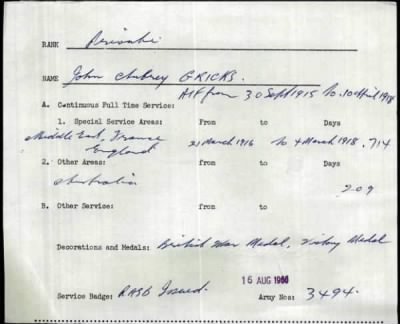 RANK Private
NAME John Aubrey GRICKS.
AIF from 30 Sept 1915 to 10 April 1918
A. Continuous Full Time Service:
1. Special Service Areas: From to Days
Middle East, France
England 21 March 1916 to 4 March 1918. 714
2. Other Areas: from to Days
Australia 209
B. Other Service: from to
Decorations and Medals: British War Medal, Victory Medal
16 AUG 1966
Service Badge: RASB Issued. Army Nos: 3494.